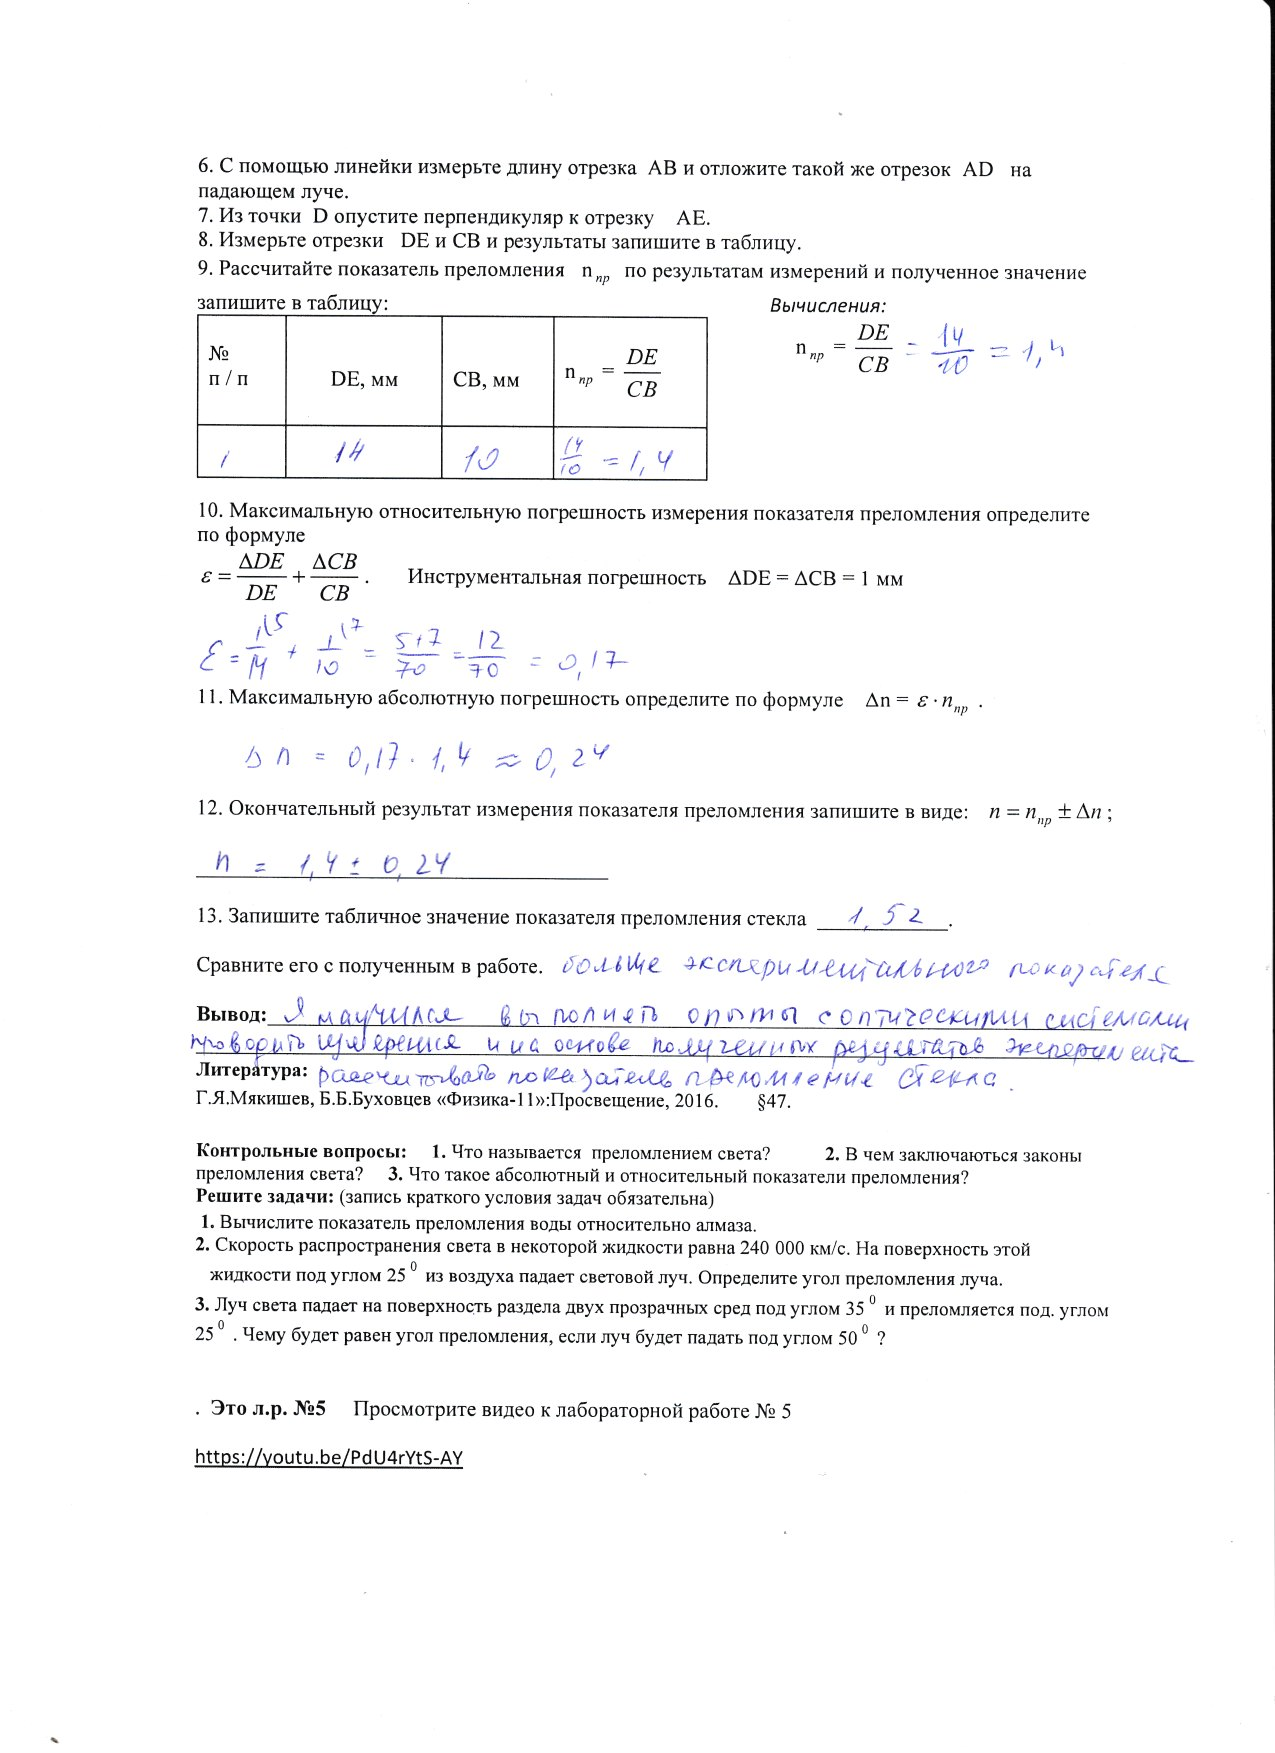 6. С помощью линейки измерьте длину отрезка АВ и отложите такой же отрезок AD на
падающем луче.
7. Из точки D опустите перпендикуляр к отрезку АЕ.
8. Измерьте отрезки DE и СВ и результаты запишите в таблицу.
9. Рассчитайте показатель преломления n пр по результатам измерений и полученное значение
запишите в таблицу:
Вычисления:
n пр = DE/CB = 14/10 = 1,4
№ п / п DE, мм СВ, мм n пр = DE/CB
1 14 10 14/10 = 1,4
10. Максимальную относительную погрешность измерения показателя преломления определите
по формуле
ε = ΔDE/DE + ΔCB/CB . Инструментальная погрешность ΔDE = ΔCB = 1 мм
ε = 1\5/14 + 1\7/10 = 5+7/70 = 12/70 = 0,17
11. Максимальную абсолютную погрешность определите по формуле Δn = ε · n пр .
Δ n = 0,17 · 1,4 ≈ 0,24
12. Окончательный результат измерения показателя преломления запишите в виде: n = n пр ± Δn ;
n = 1,4 ± 0,24
13. Запишите табличное значение показателя преломления стекла 1,52 .
Сравните его с полученным в работе. больще экспериментального показателя
Вывод: Я научился выполнять опыты с оптическими системами
проводить измерения и на основе полученных результатов эксперимента
Литература: рассчитывать показатель преломление стекла.
Г.Я.Мякишев, Б.Б.Буховцев «Физика-11»:Просвещение, 2016. §47.
Контрольные вопросы: 1. Что называется преломлением света? 2. В чем заключаються законы
преломления света? 3. Что такое абсолютный и относительный показатели преломления?
Решите задачи: (запись краткого условия задач обязательна)
1. Вычислите показатель преломления воды относительно алмаза.
2. Скорость распространения света в некоторой жидкости равна 240 000 км/с. На поверхность этой
жидкости под углом 25 0 из воздуха падает световой луч. Определите угол преломления луча.
3. Луч света падает на поверхность раздела двух прозрачных сред под углом 35 0 и преломляется под. углом
25 0 . Чему будет равен угол преломления, если луч будет падать под углом 50 0 ?
. Это л.р. №5 Просмотрите видео к лабораторной работе № 5
https://youtu.be/PdU4rYtS-AY